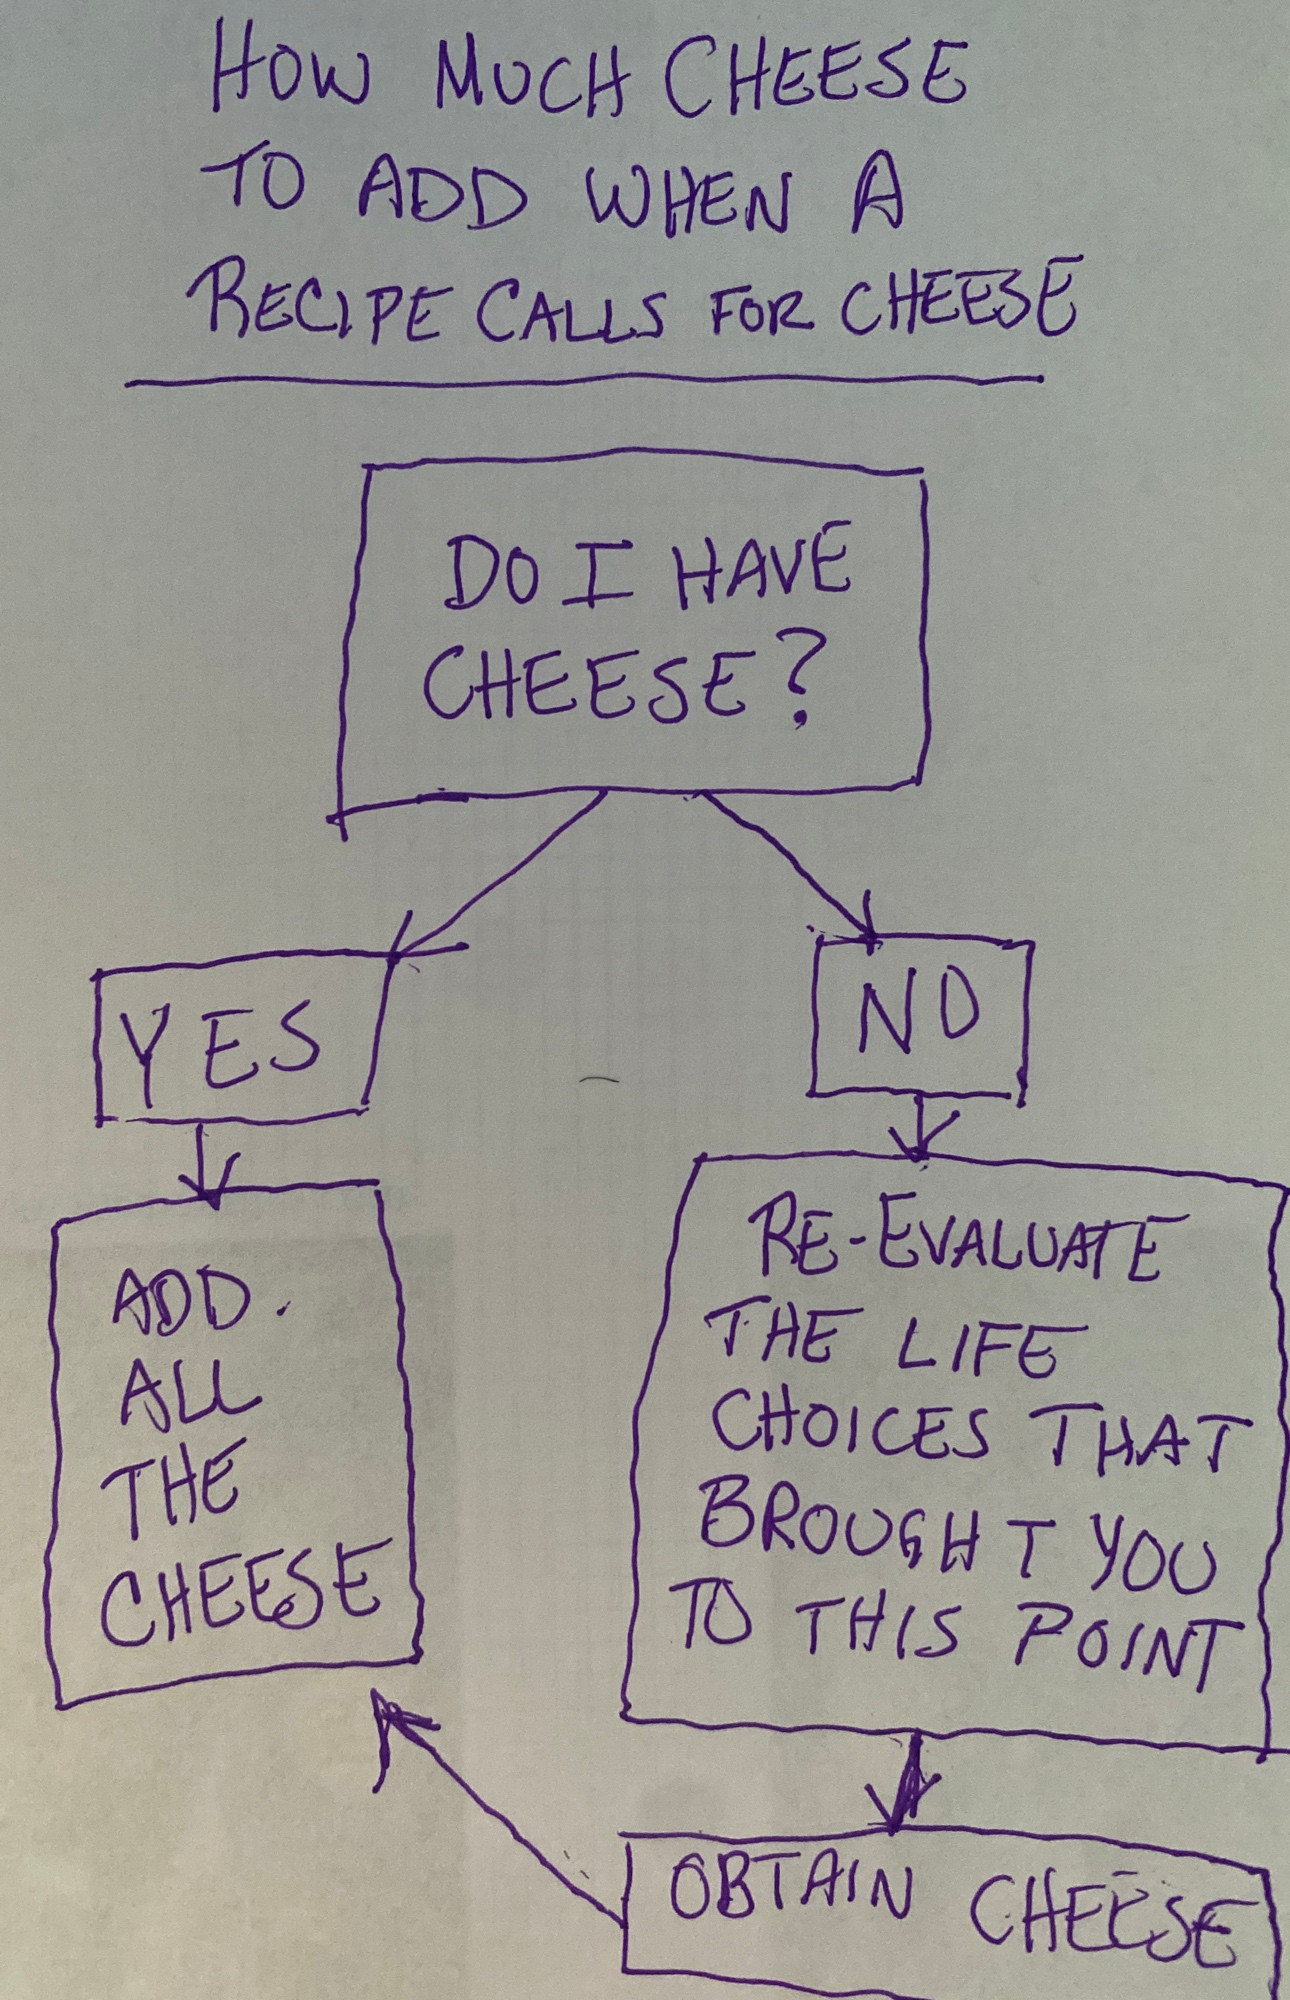 HOW MUCH CHEESE
TO ADD WHEN A
RECIPE CALLS FOR CHEESE
DO I HAVE
CHEESE?
YES
NO
ADD.
ALL
THE
CHEESE
RE-EVALUATE
THE LIFE
CHOICES THAT
BROUGHT YOU
TO THIS POINT
OBTAIN CHEESE